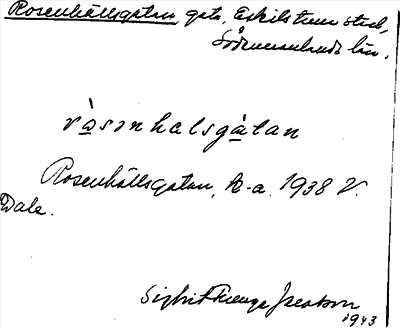 Rosenhällsgatan, gata, Eskilstuna stad,
Södermanlands län.
ràsənhalsgàtan
Rosenhällsgatan, k-a. 1938 V.
Dala.
Sigbrit Plenge Jacobson
1943